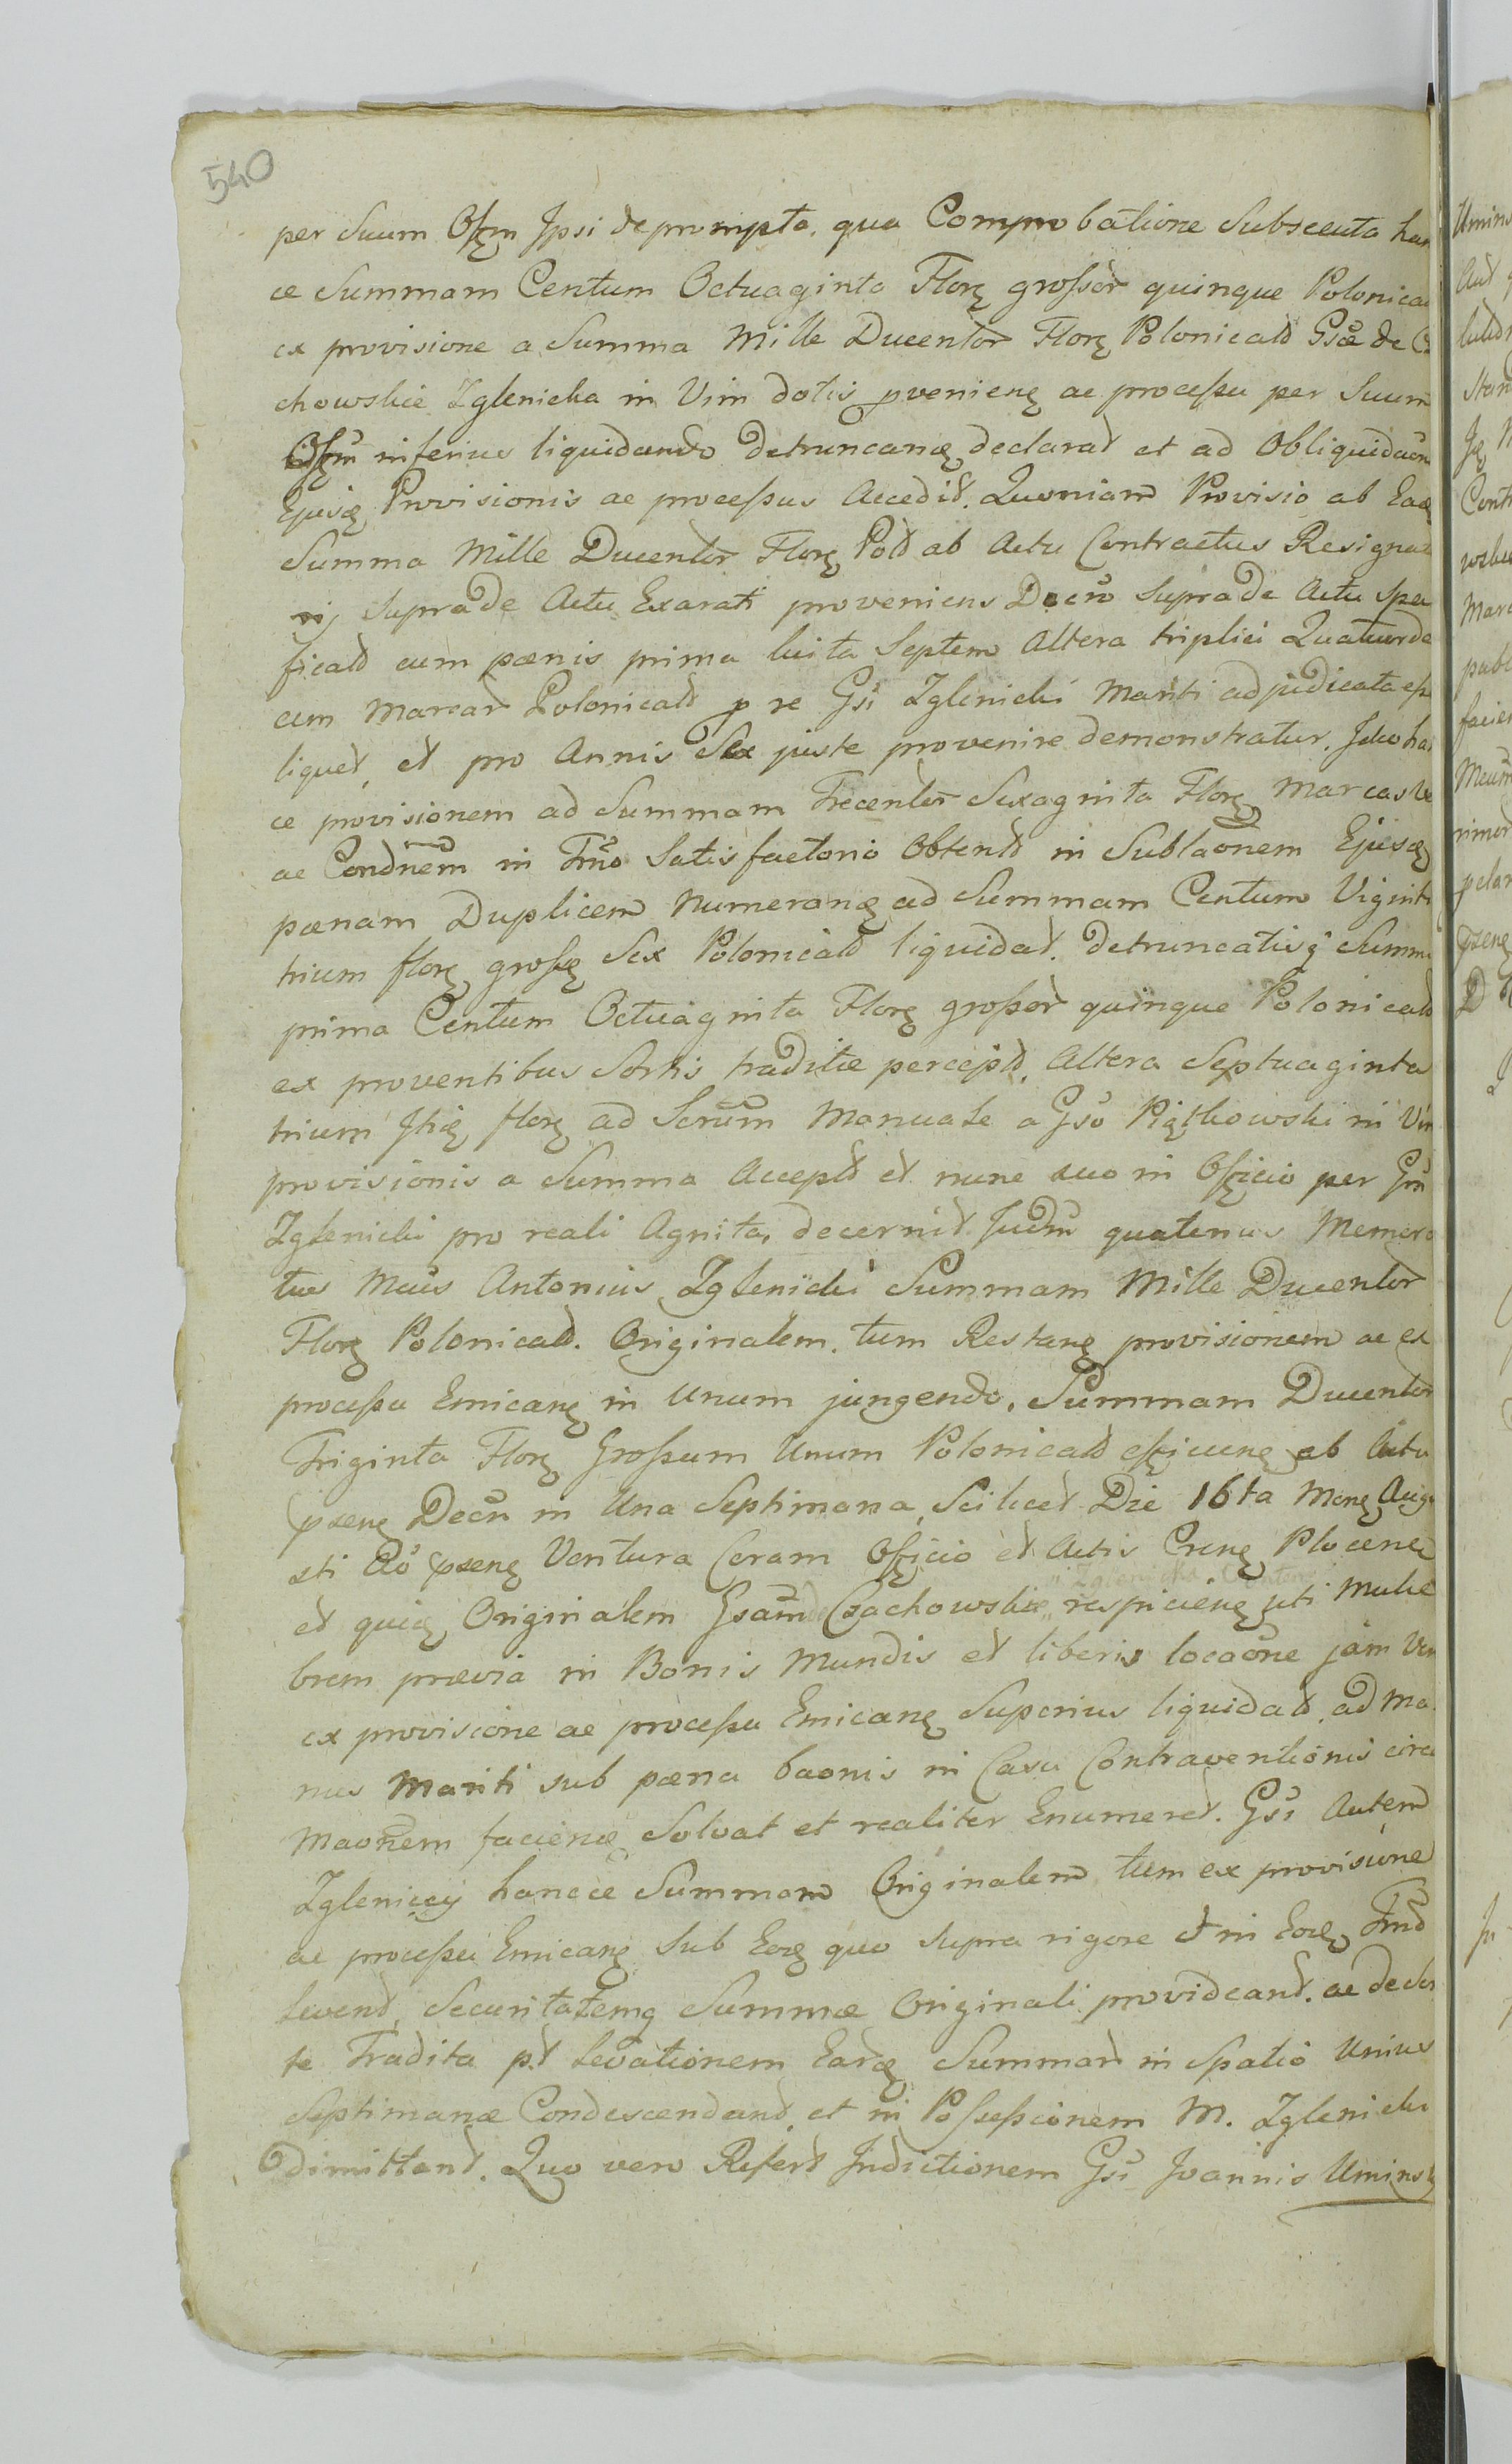 540
per Suum Offm Ipsi deprompta, qua Comprobatione Subsecuta han
ce Summam Centum Octuaginta Flor grossor quinque Polonica
ex provisione a Summa Mille Ducentor Flor Polonical Gsae de C
chowskie Zglenicka in Vim dotis pvenien ac processu per Suum
Offm inferius liquidando detruncan declarat et ad Obliquidaon
Ejusd Provisionis ac processus Accedit. Quoniam Provisio ab Ead
Summa Mille Ducentor Flor Pol ab Actu Contractus Resignat
rij supra de Actu Exarati proveniens Decro supra de Actu Spec
ficat cum paenis prima luita Septem altera triplici Quatuorde
cim Marcar Polonical p re Gsi Zglenicki Mariti adjudicata esse
liquet, et pro Annis Sex juste provenire demonstratur, Ideo han
ce provisionem ad Summam Trecentor Sexaginta Flor Marcas Ve
ac Condnem in Trno Satisfactorio Obtent in Sublaonem Ejusd
paenam Duplicem Numeran ad Summam Centum Viginti
trium flor gross Sex Polonical liquidat. detruncatisq Summa
prima Centum Octuaginta Flor grossor quinque Polonical
ex proventibus Sortis traditae percept, Altera Septuaginta
trium Itid flor ad Scrum Manuale a Gso Piątkowski in Vim
provisionis a Summa Accept et nunc suo in Officio per Gm
Zglenicki pro reali Agnita, decernit Judm quatenus Memora
tus Mcus Antonius Zglenicki Summam Mille Ducentor
Flor Polonical. Originalem, tum Restan provisionem ac ex
processu Emican in Unum jungendo, Summam Ducentor
Triginta Flor Grossum Unum Polonical efficien ab Actu
psen Decri in Una Septimana, Scilicet Die 16ta Men Augu
sti Ao psen Ventura Coram Officio et Actis Cren Plocen
et quid Originalem Gsam de Czachowskie respicien uti Mulie
brem praevia in Bonis Mundis et liberis locaone jam Vero
ex provisione ac processu Emican Superius liquidat, ad ma
nus Mariti sub paena baonis in Casu Contraventionis circa
Maonem facien Solvat et realiter Enumeret. Gsi Autem
Zgleniccy hancce Summam Originalem tum ex provisione
ac processu Emican Sub Eod quo supra rigore et in Eod Trno
levent, Securitatemq Summae Originali provideant. ac de Sor
te Tradita pt levationem Eard Summar in Spatio Unius
Septimanae Condescendant, et in Possessionem M. Zglenicki
dimittant. Quo vero Refert Indictionem Gsi Joannis Uminsk